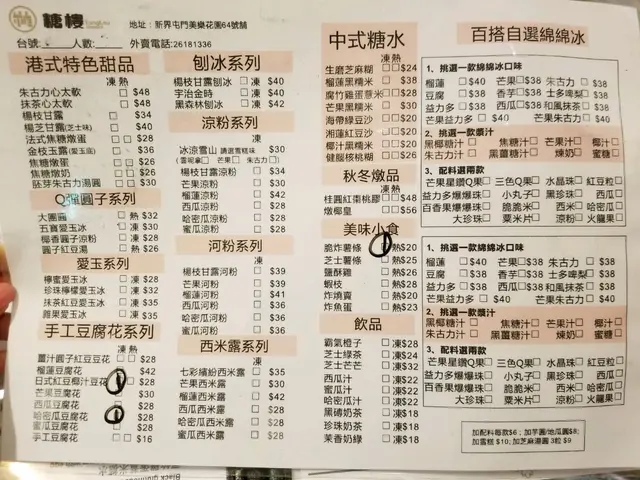 糖樓
地址：新界屯門美樂花園64號舖
台號： 人數 外賣電話:26181336
港式特色甜品
凍 熱
朱古力心太軟 □ $48
抹茶心太軟 □ $48
楊枝甘露 □ $34
楊芝甘露(芝士味) □ $40
法式焦糖燉蛋 □ $28
金枝玉露(愛玉底) □ $36
焦糖燉蛋 □□ $26
焦糖燉奶 □□ $26
胚芽朱古力湯圓 □□ $30
Q彈圓子系列
大團圓 □ 熱 $32
五寶愛玉冰 □ 凍 $30
椰香圓子涼粉 □ 凍 $28
圓子紅豆湯 □ 熱 $26
愛玉系列
檸蜜愛玉冰 □ 凍 $28
珍珠檸檬愛玉冰 □ 凍 $32
抹茶紅豆愛玉冰 □ 凍 $35
雜果愛玉冰 □ 凍 $35
手工豆腐花系列
凍 熱
薑汁圓子紅豆豆花 □□ $28
榴蓮豆腐花 □ $42
日式紅豆椰汁豆花 $28
芒果豆腐花 $30
西瓜豆腐花 □ $28
哈密瓜豆腐花 $28
蜜瓜豆腐花 □ $28
手工豆腐花 □□ $16
刨冰系列
楊枝甘露刨冰 □ 凍 $40
宇治金時 □ 凍 $40
黑森林刨冰 □ 凍 $42
涼粉系列
冰涼雪山 請選雪糕味 □ $30
(雲呢拿□ 芒果□ 朱古力□)
楊枝甘露涼粉 □ $34
芒果涼粉 □ $30
榴蓮涼粉 □ $42
西瓜涼粉 □ $28
哈密瓜涼粉 □ $28
蜜瓜涼粉 □ $28
河粉系列
楊枝甘露河粉 □ $39
芒果河粉 □ $39
榴蓮河粉 □ $41
西瓜河粉 □ $36
哈密瓜河粉 □ $36
蜜瓜河粉 □ $36
西米露系列
七彩繽紛西米露 □ $35
芒果西米露 □ $30
榴蓮西米露 □ $42
西瓜西米露 □ $28
哈密瓜西米露 □ $28
蜜瓜西米露 □ $28
中式糖水
凍 熱
生磨芝麻糊 □□ $24
榴蓮黑糯米 □□ $38
腐竹雞蛋薏米 □□ $28
芒果黑糯米 □□ $30
海帶綠豆沙 □□ $20
湘蓮紅豆沙 □□ $20
椰汁黑糯米 □□ $20
健腦核桃糊 □□ $26
秋冬燉品
桂圓紅棗桃膠 □ $48
燉椰皇 □ $56
美味小食
脆炸薯條 熱$20
芝士薯條 □ 熱$25
鹽酥雞 □ 熱$26
蝦枝 □ 熱$28
炸燒賣 □ 熱$20
炸魚蛋 □ 熱$23
飲品
霸氣橙子 □ 凍$28
芝士綠茶 □ 凍$24
芝士芒芒 □ 凍$32
西瓜汁 □ 凍$22
蜜瓜汁 □ 凍$22
哈密瓜汁 □ 凍$22
黑磚奶茶 □ 凍$18
珍珠奶茶 □ 凍$18
茉香奶綠 □ 凍$18
百搭自選綿綿冰
1、挑選一款綿綿冰口味
榴蓮 □ $40 芒果□ $38 朱古力 □ $38
豆腐 □ $38 香芋□ $38 士多啤梨□ $38
益力多 □ $38 西瓜□ $38 和風抹茶□ $38
芒果益力多 □ $40 芒果朱古力□ $40
2、挑選一款漿汁
黑椰糖汁□ 焦糖汁□ 芒果汁□ 椰汁□
朱古力汁□ 黑薑糖汁□ 煉奶□ 蜜糖□
3、配料選兩款
芒果星鑽Q果□ 三色Q果□ 水晶珠□ 紅豆粒□
益力多爆爆珠□ 小丸子□ 黑珍珠□ 西瓜□
百香果爆爆珠□ 脆脆米□ 西米□ 哈蜜瓜□
大珍珠□ 粟米片□ 涼粉□ 火龍果□
1、挑選一款綿綿冰口味
榴蓮 □ $40 芒果□ $38 朱古力 □ $38
豆腐 □ $38 香芋□ $38 士多啤梨□ $38
益力多 □ $38 西瓜□ $38 和風抹茶□ $38
芒果益力多 □ $40 芒果朱古力□ $40
2、挑選一款漿汁
黑椰糖汁□ 焦糖汁□ 芒果汁□ 椰汁□
朱古力汁□ 黑薑糖汁□ 煉奶□ 蜜糖□
3、配料選兩款
芒果星鑽Q果□ 三色Q果□ 水晶珠□ 紅豆粒□
益力多爆爆珠□ 小丸子□ 黑珍珠□ 西瓜□
百香果爆爆珠□ 脆脆米□ 西米□ 哈蜜瓜□
大珍珠□ 粟米片□ 涼粉□ 火龍果□
加配料每款$6；加芋圓/地瓜圓$8;
加雪糕 $10; 加芝麻湯圓 3粒 $9